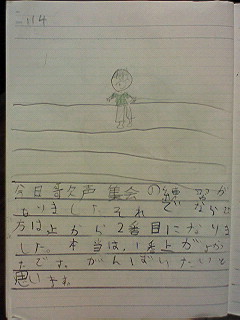 二、114
今日音欠声集会の練習が
ありました。それでならび
方は上から2番目になりま
した。本当は、1番上がよか
たです。がんばりたいと
思います。